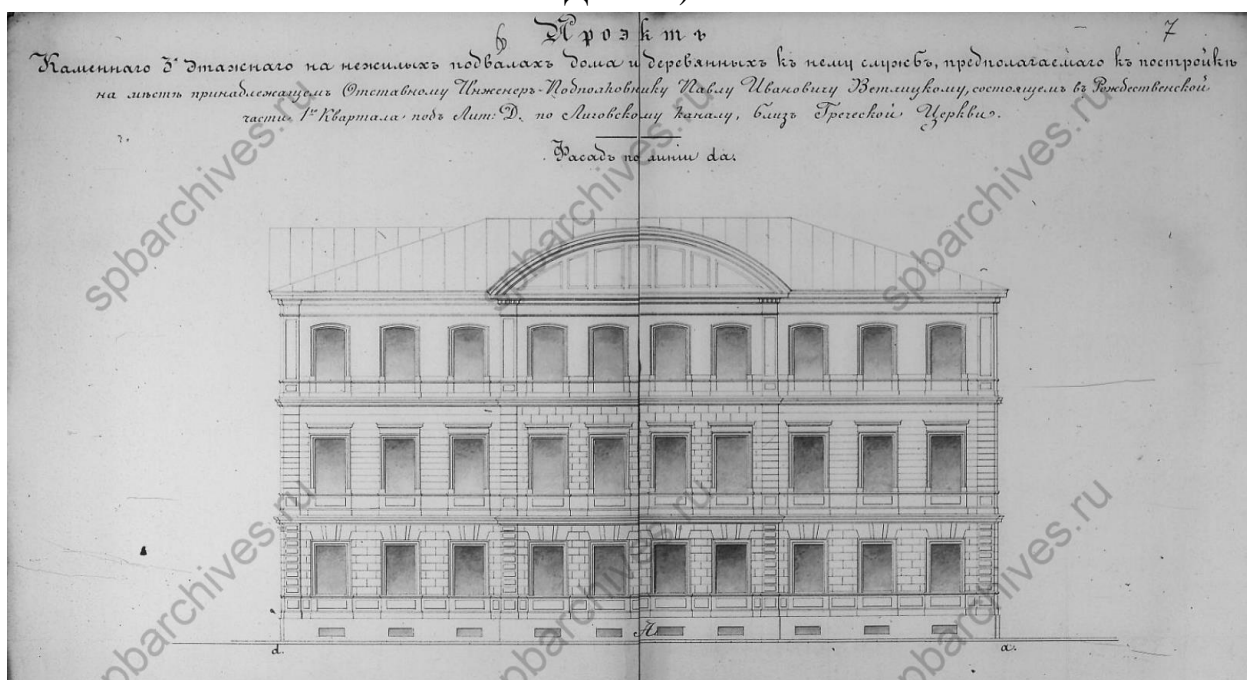 6 Проэктъ 7
Каменнаго 3х Этажнаго на нежилыхъ подвалахъ дома и деревянныхъ къ нему службъ, предполагаемаго къ постройкѣ
на мѣстѣ принадлежащемъ Отставному Инженеръ-Подполковнику Павлу Ивановичу Ветлицкому, состоящемъ въ Рождественской
части, 1го Квартала подъ Лит: D. по Лиговскому каналу, близъ Греческой Церкви.
Фасадъ по линіи da.
spbarchives.ru
spbarchives.ru
spbarchives.ru
spbarchives.ru
spbarchives.ru
spbarchives.ru
A
d. a.
spbarchives.ru
spbarchives.ru
spbarchives.ru